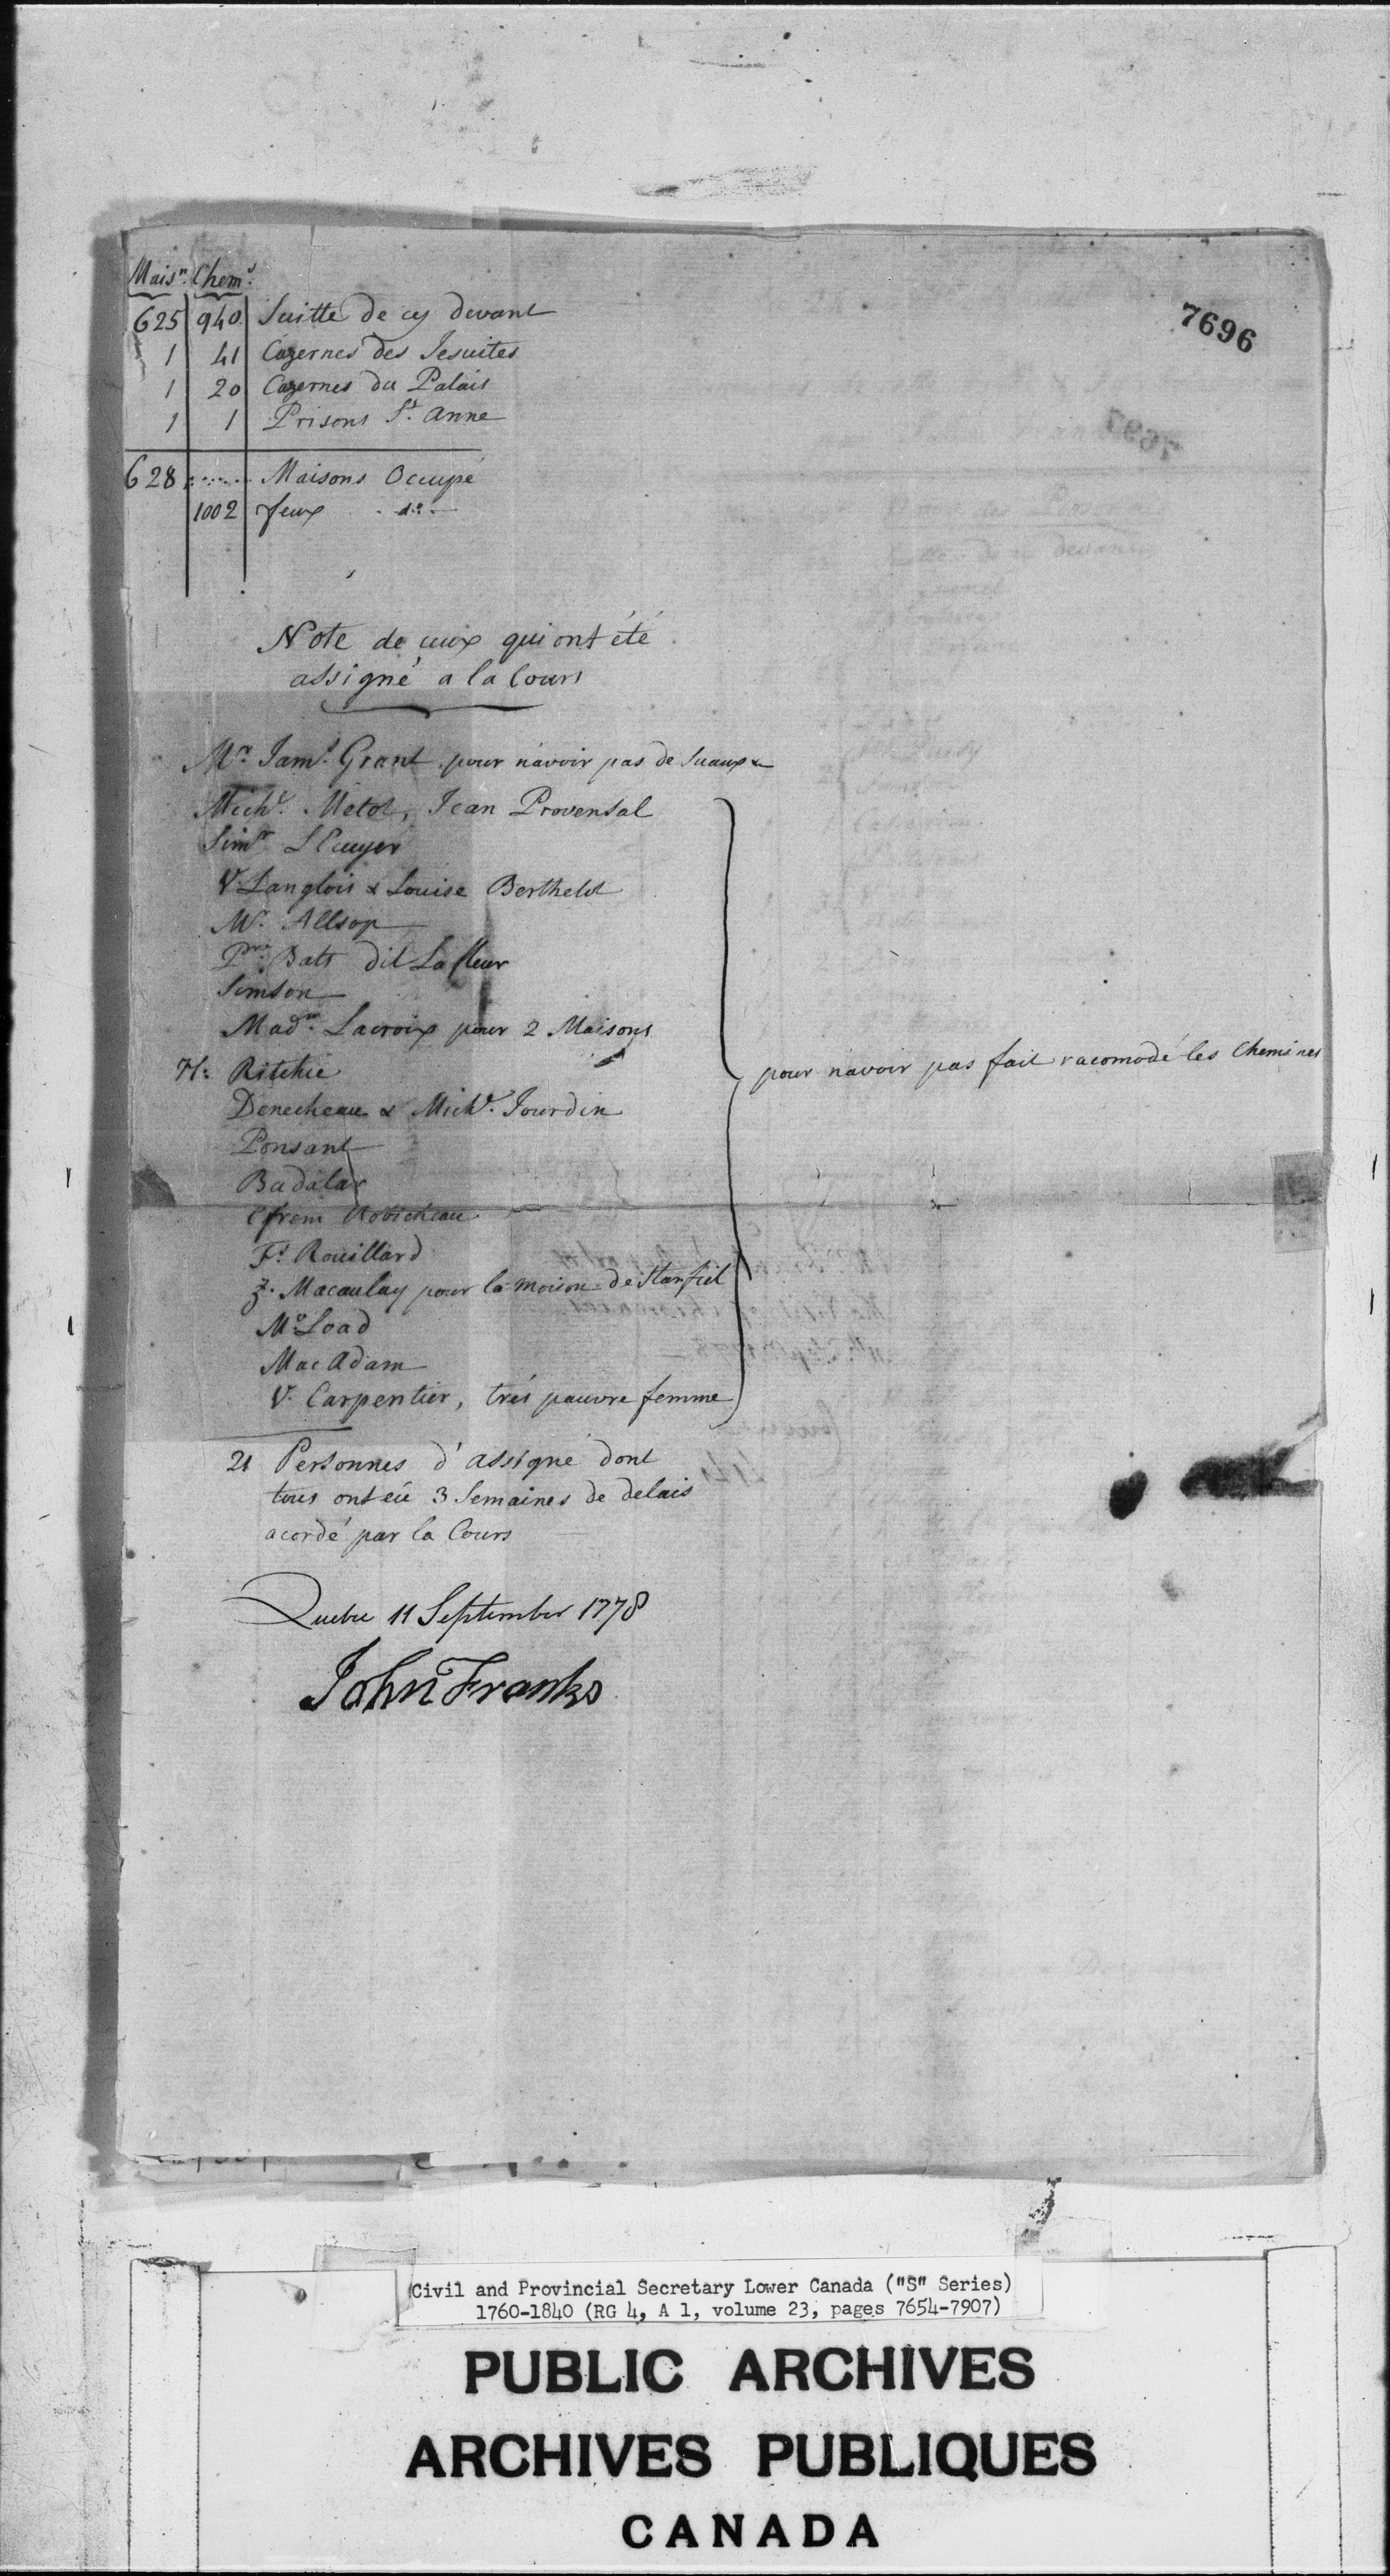 7696
Maisn. Chems.
625 940 Suitte de cy devant
1 41 Cazernes des Jesuites
1 20 Cazernes du Palais
1 1 Prisons St. Anne
628 Maisons Occupé
1002 feux do.
Note de ceux qui ont été
assigné a la Cours
Mr. Jams. Grant pour n'avoir pas de Suaux
Michl. Metot, Jean Provensal
Simr. LEcuyer
V. Langlois & Louise Berthelot
Mr. Allsop
Pre. Bats dit Lafleur
Simson
Madm. Lacroix pour 2 Maisons
H: Ritchie
Denecheau & Michl. Jourdin
Ponsant
Badalar
Efrem Robicheau
Fs. Rouillard
Z. Macaulay pour la maison de Stanfiel
Mc.Load
Mac Adam
V. Carpentier, trés pauvre femme
pour n'avoir pas fait racomodé les Chemines
21 Personnes d'assigné dont
tous ont eü 3 Semaines de delais
acordé par la Cours
Quebec 11 September 1778
John Franks
Civil and Provincial Secretary Lower Canada ("S" Series)
1760-1840 (RG 4, A 1, volume 23, pages 7654-7907)
PUBLIC ARCHIVES
ARCHIVES PUBLIQUES
CANADA